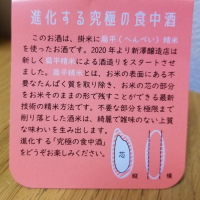 進化する究極の食中酒
このお酒は、掛米に扁平(へんぺい)精米
を使ったお酒です。2020年より新澤醸造店は
新しく扁平精米による酒造りをスタートさせ
ました。扁平精米とは、お米の表面にある不
要なたんぱく質を取り除き、お米の芯の部分
をお米そのままの形で残すことができる最新
技術の精米方法です。不要な部分を極限まで
削り落とした酒米は、綺麗で雑味のない上質
な味わいを生み出します。
進化する『究極の食中酒』
をどうぞお楽しみください。
芯
縦
横